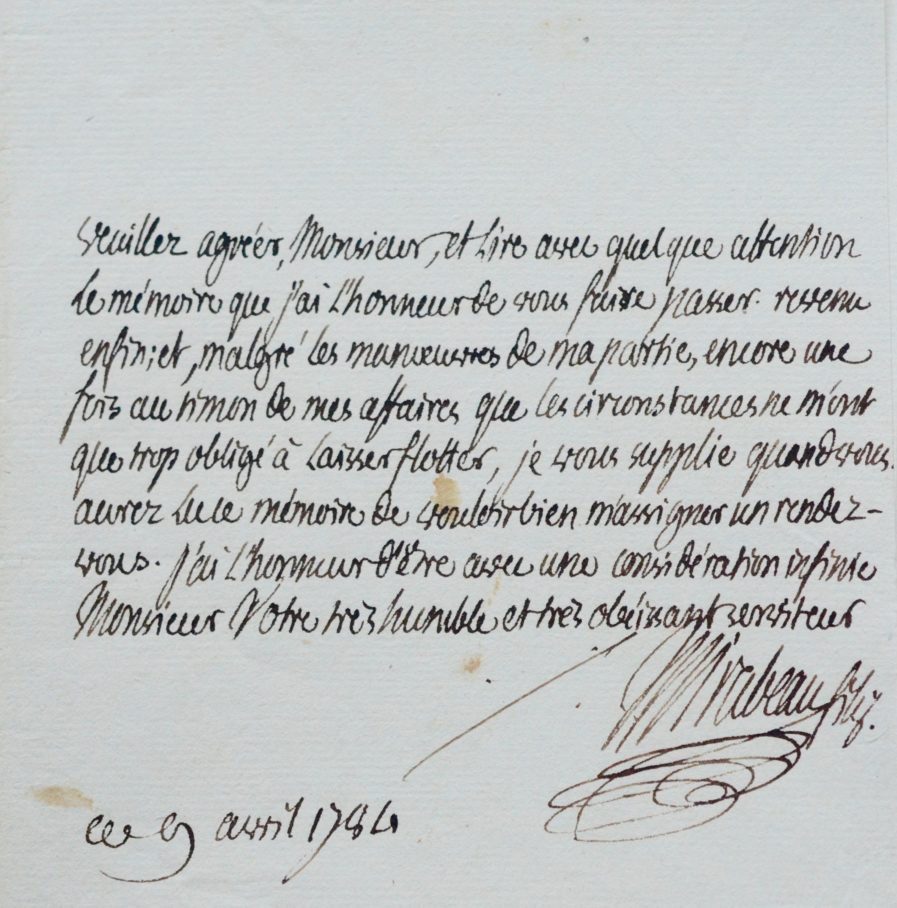 veuillez agréer, Monsieur, et Lire avec quelque attention
le mémoire que j'ai L'honneur de vous faire passer. revenu
enfin; et, malgré les manœuvres de ma partie, encore une
fois au timon de mes affaires que les circonstances ne m'ont
que trop obligé à Laisser flotter, je vous supplie quand vous
aurez Lu ce mémoire de vouloir bien m'assigner un rendez-
vous. j'ai L'honneur d'être avec une considération infinie
Monsieur Votre très humble et très obéissant serviteur
Mirabeau fils.
ce 9 avril 1784